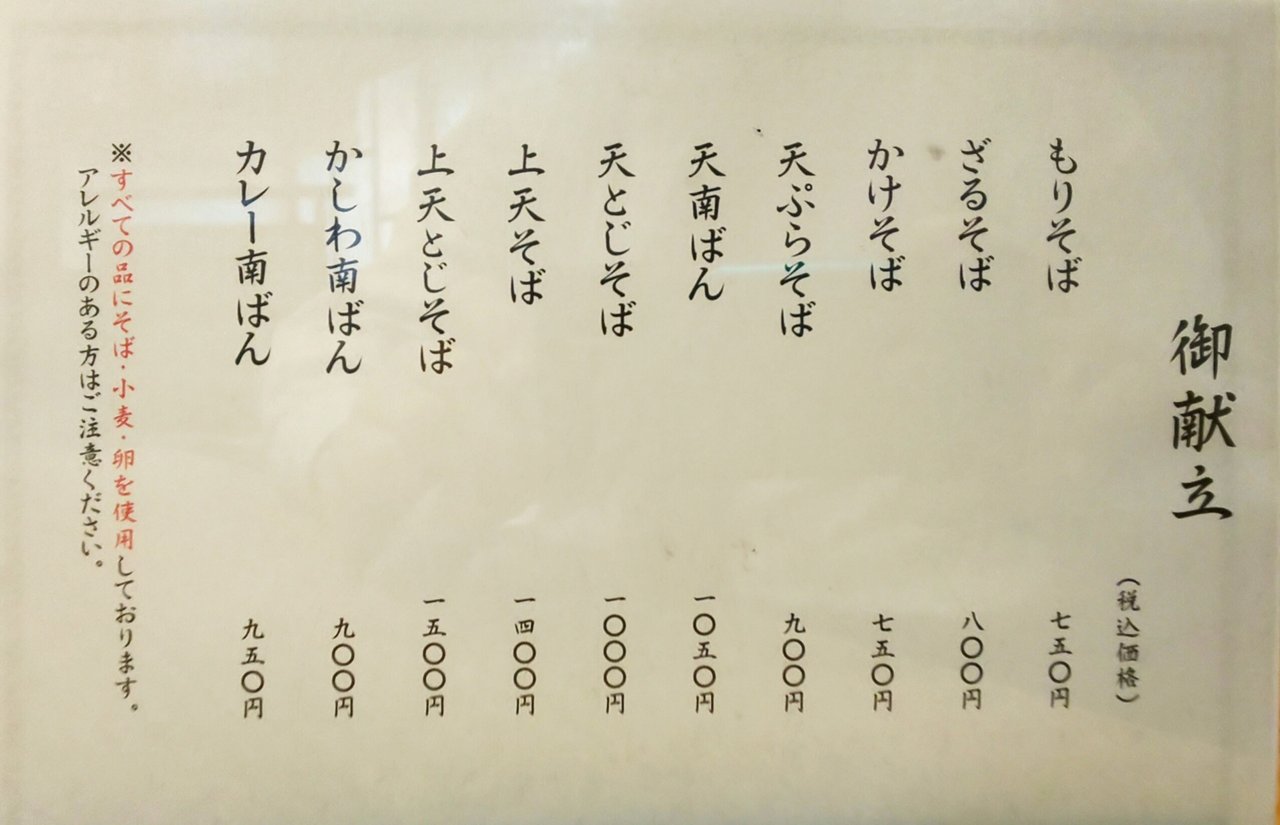 御献立
（税込価格）
もりそば 七五〇円
ざるそば 八〇〇円
かけそば 七五〇円
天ぷらそば 九〇〇円
天南ばん 一〇五〇円
天とじそば 一〇〇〇円
上天そば 一四〇〇円
上天とじそば 一五〇〇円
かしわ南ばん 九〇〇円
カレー南ばん 九五〇円
※すべての品にそば・小麦・卵を使用しております。
アレルギーのある方はご注意ください。